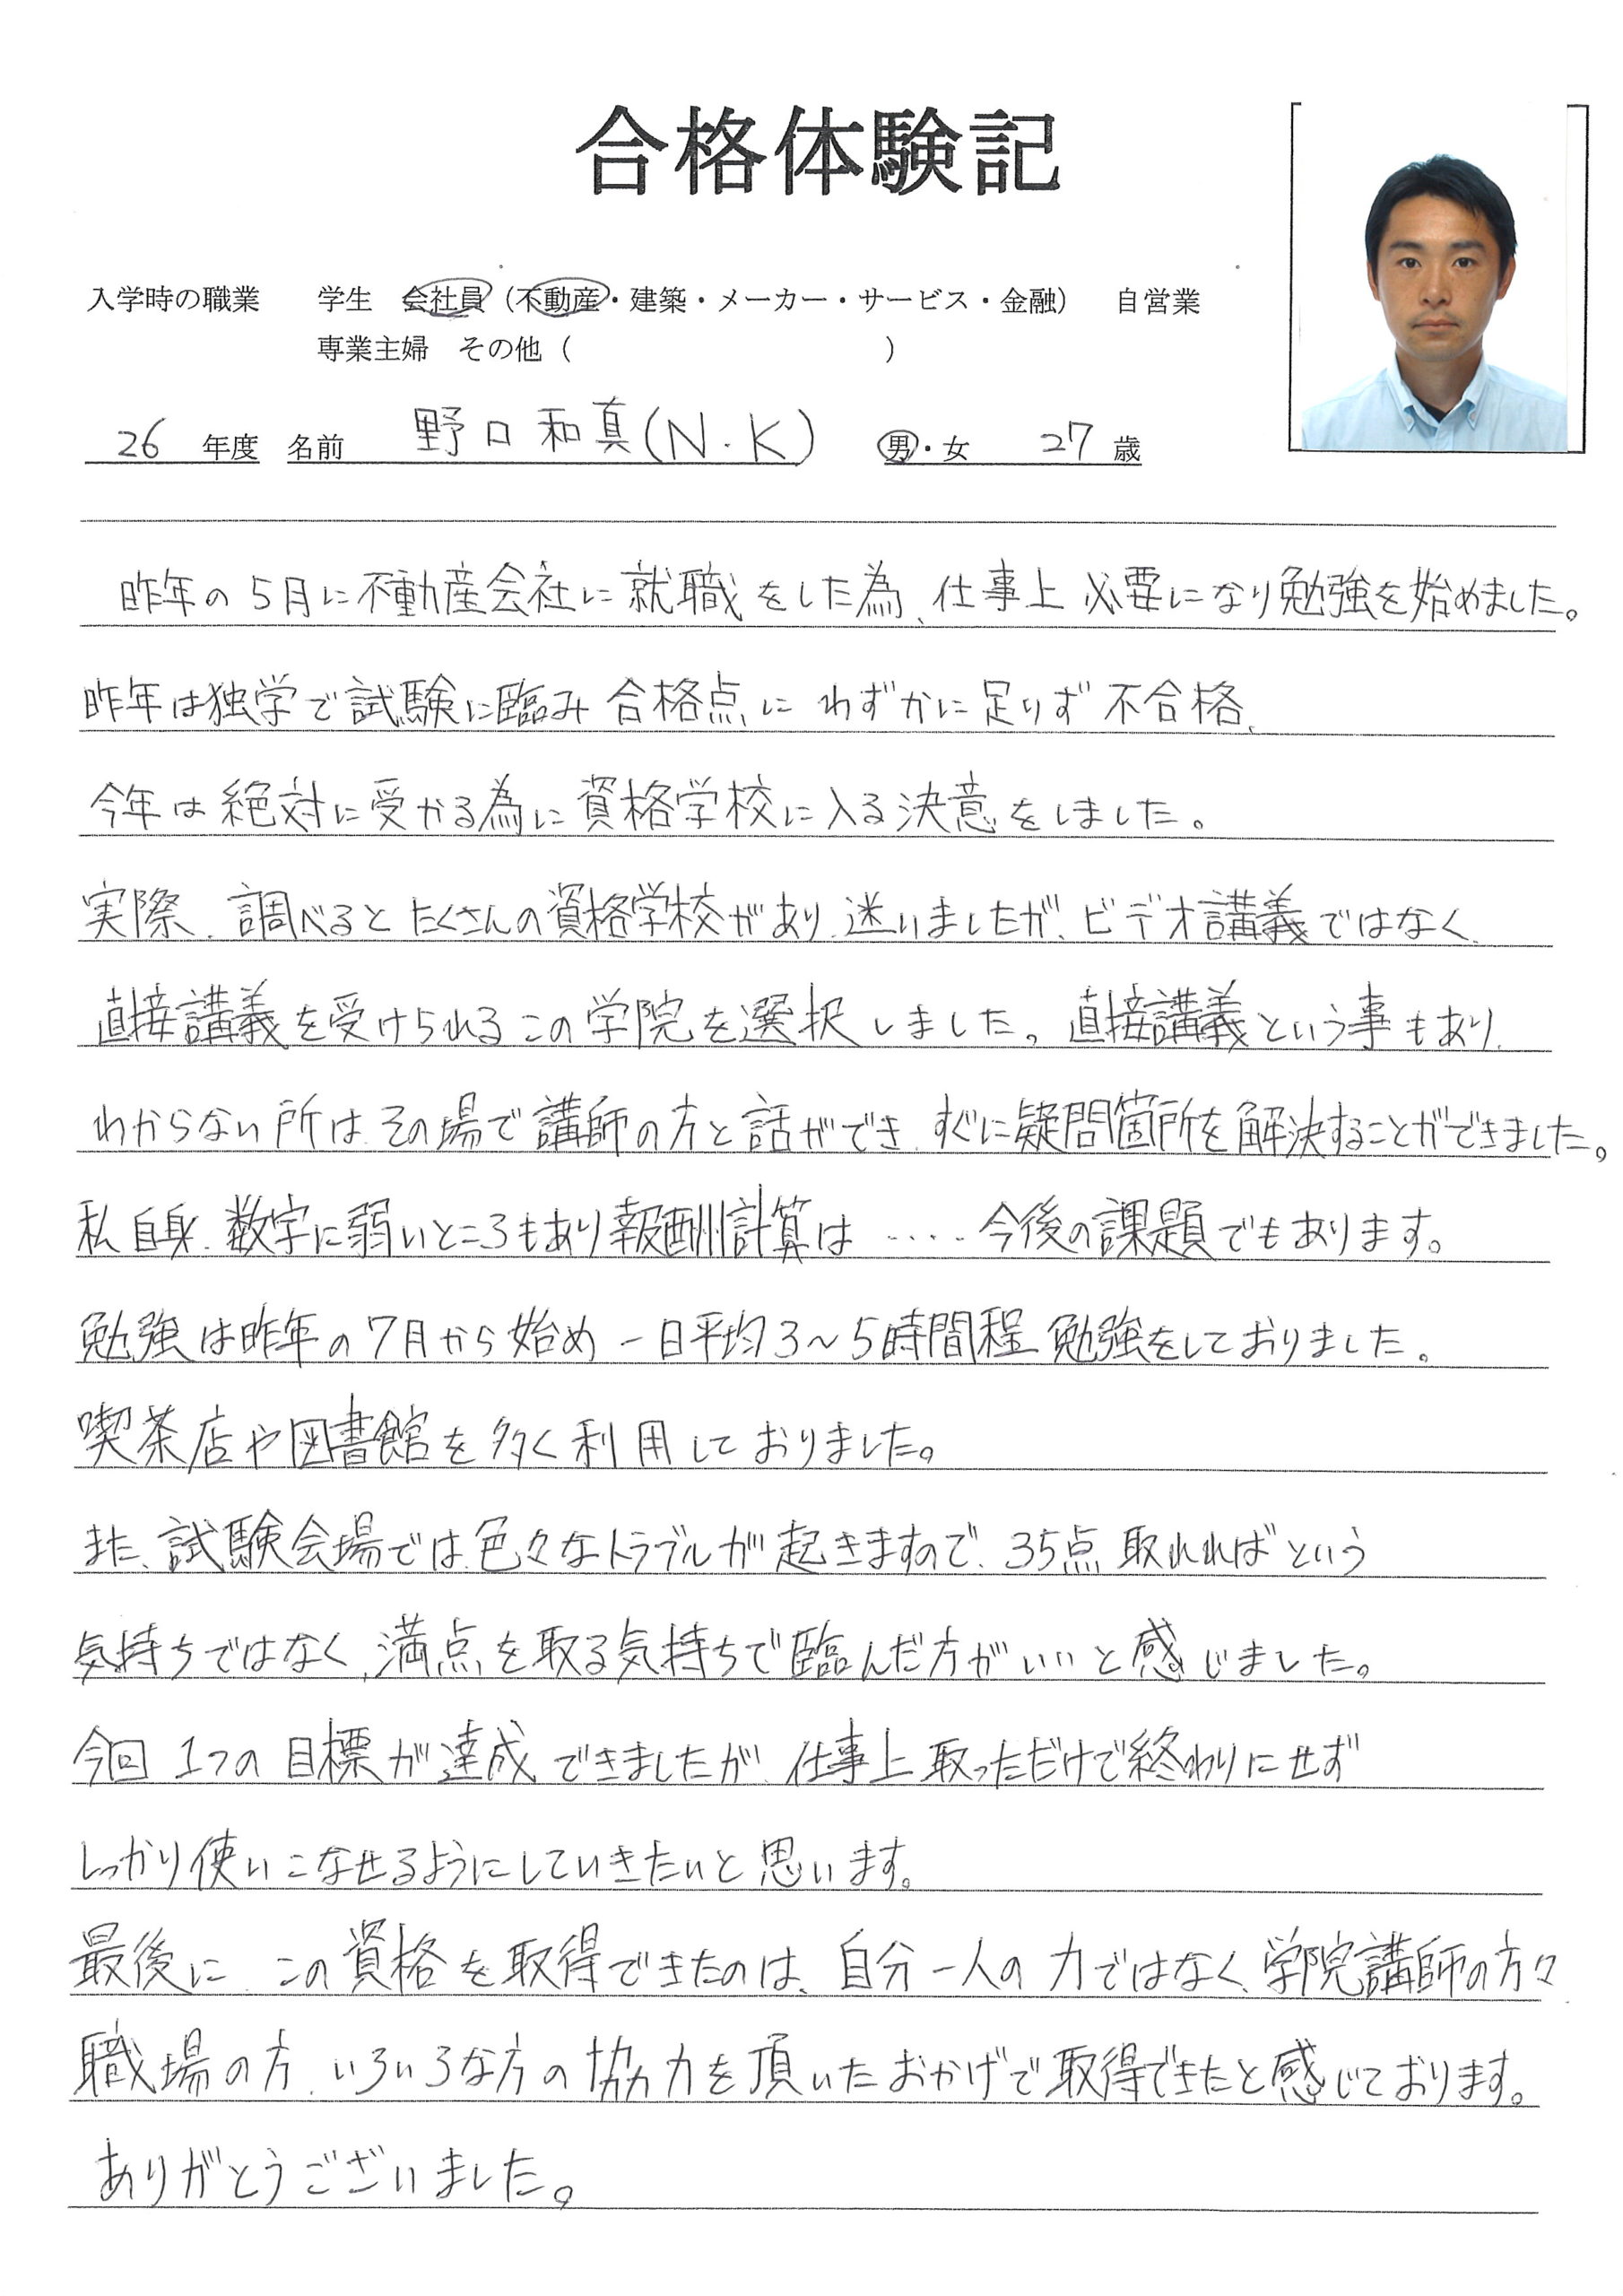 合格体験記
入学時の職業 学生 会社員（不動産・建築・メーカー・サービス・金融） 自営業
専業主婦 その他（ ）
26 年度 名前 野口和真(N.K) 男・女 27 歳
昨年の5月に不動産会社に就職をした為、仕事上必要になり勉強を始めました。
昨年は独学で試験に臨み合格点にわずかに足りず不合格、
今年は絶対に受かる為に資格学校に入る決意をしました。
実際、調べるとたくさんの資格学校があり、迷いましたが、ビデオ講義ではなく、
直接講義を受けられるこの学院を選択しました。直接講義という事もあり、
わからない所は、その場で講師の方と話ができ、すぐに疑問箇所を解決することができました。
私自身、数字に弱いところもあり報酬計算は ‥‥ 今後の課題でもあります。
勉強は昨年の7月から始め一日平均3～5時間程勉強をしておりました。
喫茶店や図書館を多く利用しておりました。
また、試験会場では、色々なトラブルが起きますので、35点取れればという
気持ちではなく、満点を取る気持ちで臨んだ方がいいと感じました。
今回1つの目標が達成できましたが、仕事上取っただけで終わりにせず
しっかり使いこなせるようにしていきたいと思います。
最後に この資格を取得できたのは、自分一人の力ではなく、学院講師の方々
職場の方、いろいろな方の協力を頂いたおかげで取得できたと感じております。
ありがとうございました。